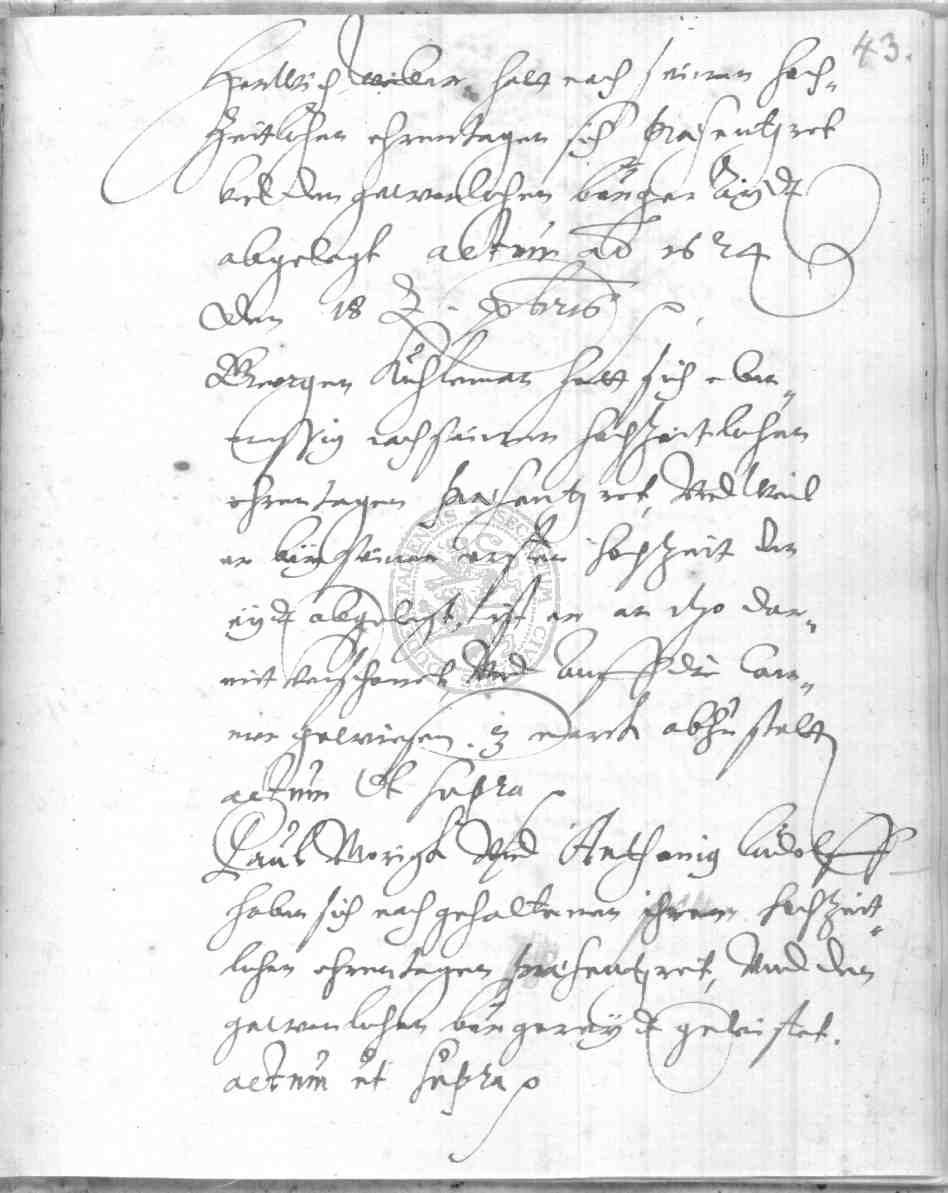 43.
hatt nach seinem hoch-
zeitlichen ehrentagen sich praesentiret
den gewonlichen bürger äydt
abgelegt actum aō 1624
den 18 8bris
Georgen Kuhleman hatt sich eben-
messig nach seinem hochzeitlichen
ehrentagen praesentiret, Und weil
er bey seiner ersten hochzeit den
eydt abgelegt, ist er an itzo dar-
mit verschonet Und auff die Cam-
mer gewiesen. 3 marck abzustatten
actum Ut supra
Paul Und Anthonig Ludolff
haben sich nach gehaltenen ihren hochzeit-
lichen ehrentagen praesentiret, Und den
gewonlichen bürgereydt geleistet.
actum ut supra
SECRETUM CIVI